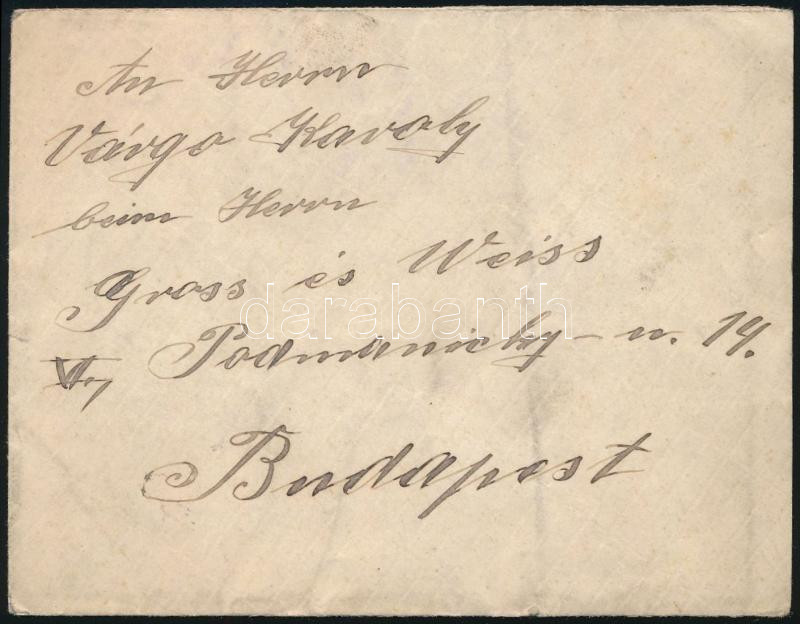 An Herrn
Várgo Karoly
beim Herrn
Gross és Weiss
darabanth
VI., Podmaniczky-u. 14.
Budapest